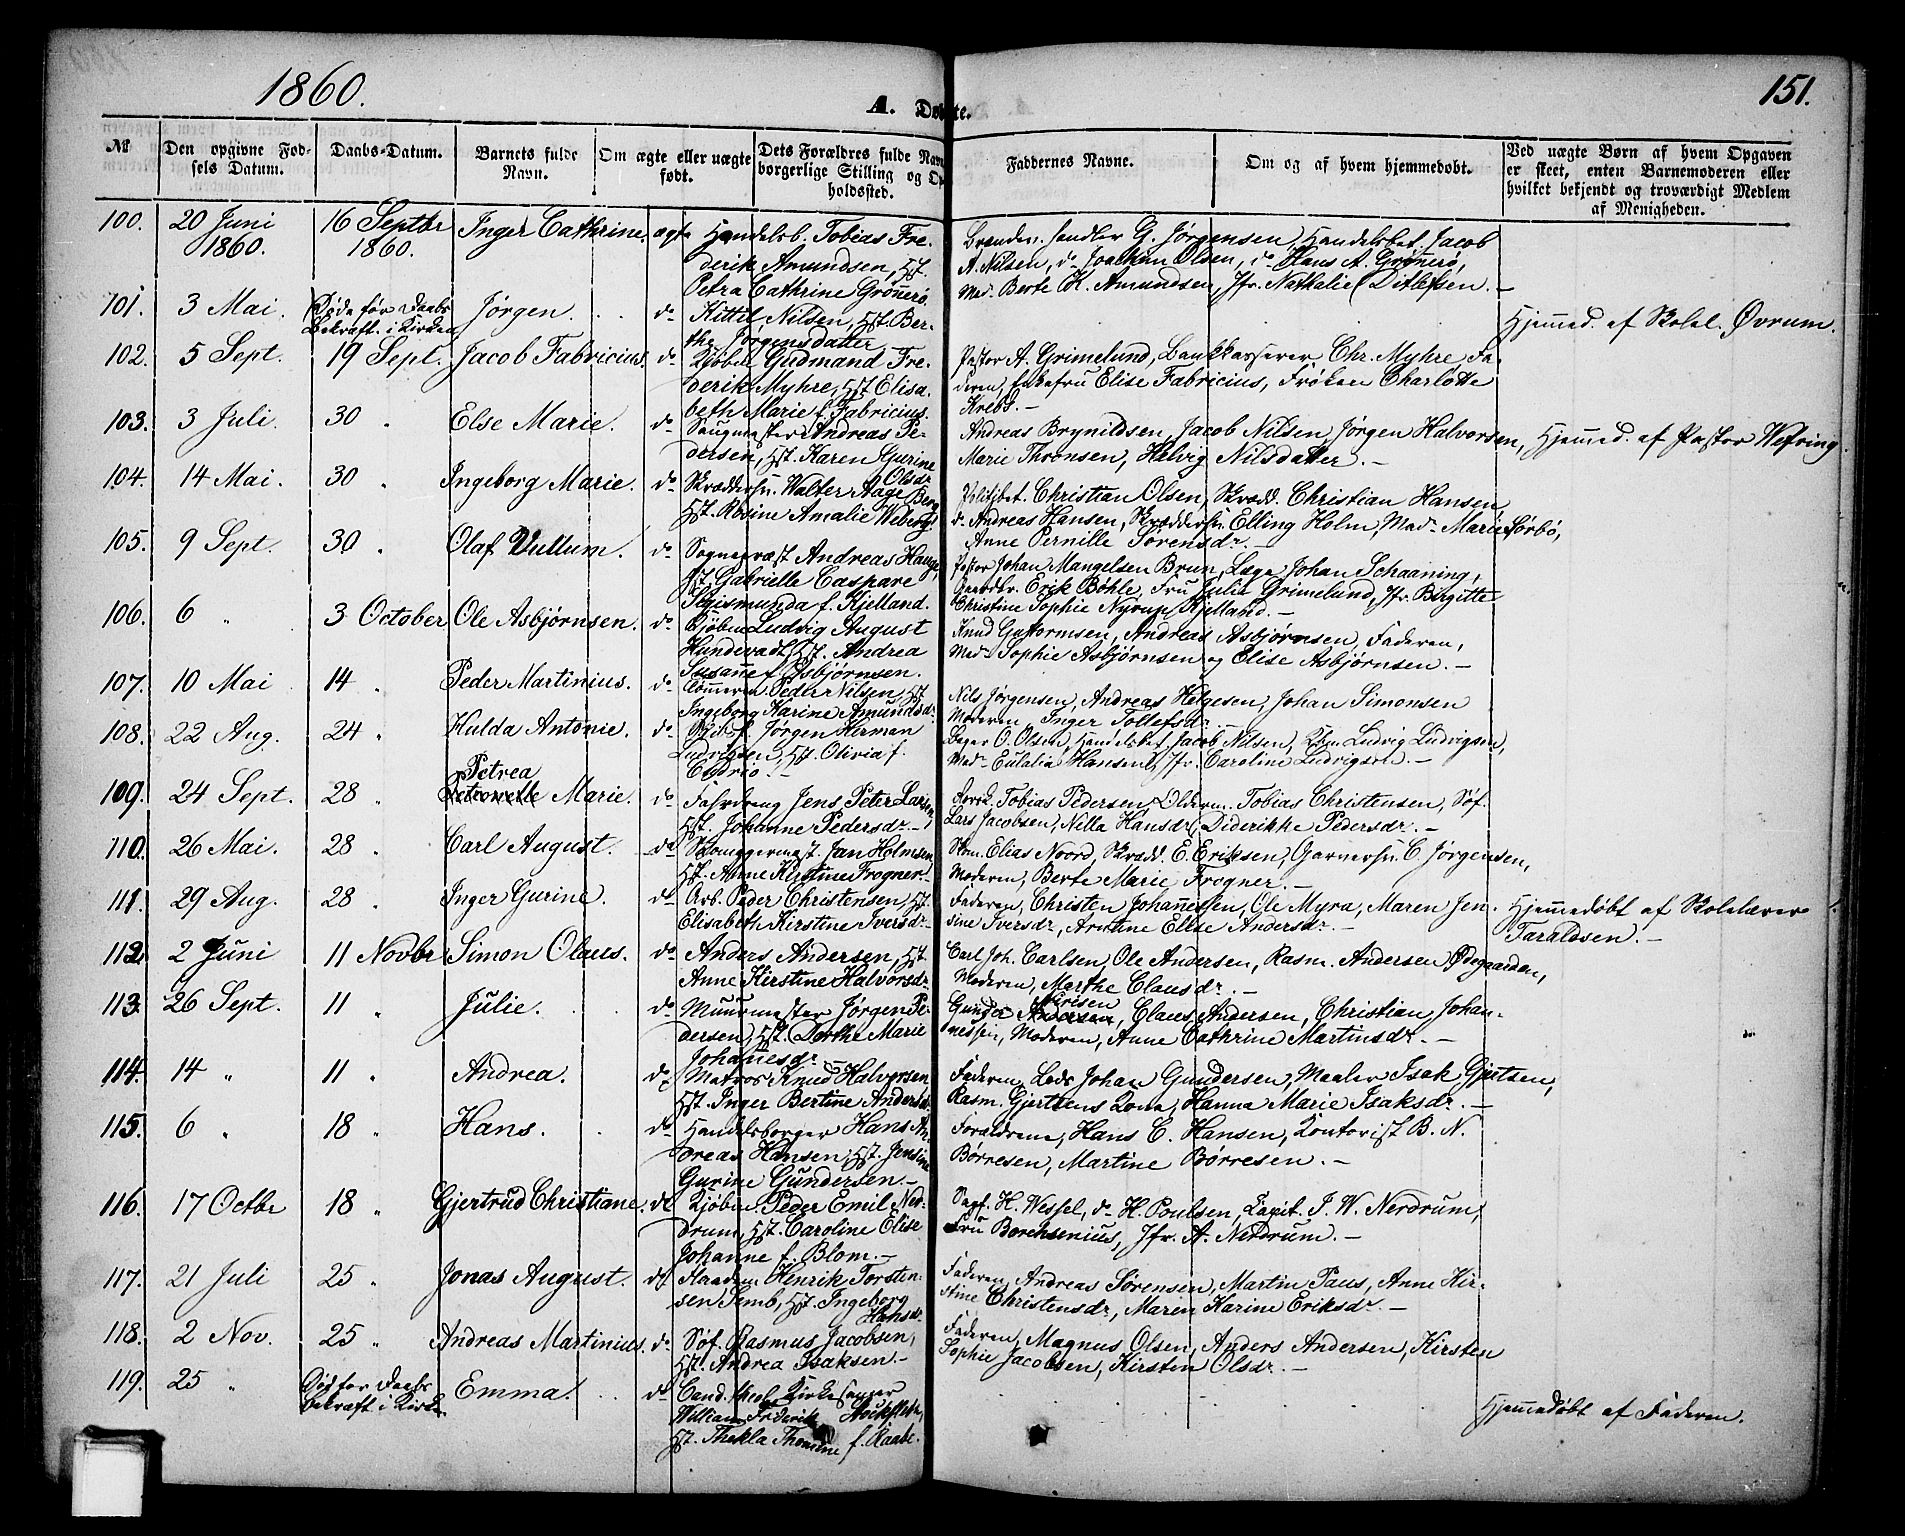 1860.
A. Døbte.
151.
No
Den opgivne Fød-
sels Datum.
Daabs-Datum.
Barnets fulde
Navn.
Om ægte eller uægte
født.
Dets Forældres fulde Navn
borgerlige Stilling og Op-
holdssted.
Faddernes Navne.
Om og af hvem hjemmedøbt.
Ved uægte Børn af hvem Opgaven
er skeet, enten Barnemoderen eller
hvilket bekjendt og troværdigt Medlem
af Menigheden.
100. 20 Juni 16 Septbr Inger Cathrine. ægte Handelsb. Tobias Fre-
1860. 1860.
derik Amundsen, Hst.
Petra Cathrine Grønerö.
G. Jørgensen, Handelsbet. Jacob
A. Nilsen, do Joachim Olsen, do Hans A. Grønerö,
Mad. Berte K. Amundsen, Jfr. Nathalie Ditlefsen. —
101. 3 Mai. Døde før Daabs Jørgen. do Kittil Nilsen, Hst. Ber-
Bekræft. i Kirken
the Jørgensdatter
Hjemmed. af Skolel. Øvrum.
102. 5 Sept. 19 Sept. Jacob Fabricius. do Kjøbm. Gudmand Fre-
derik Myhre, Hst. Elisa-
beth Marie f. Fabricius.
Pastor A. Grimelund, Bankkasserer Chr. Myhre Fa-
deren, Enkefru Elise Fabricius, Frøken Charlotte
Krebs. —
103. 3 Juli. 30 " Else Marie. do Saugmester Andreas Pe-
dersen, Hst. Karen Gurine
Olsdr
Andreas Brynildsen, Jacob Nilsen, Jørgen Halvorsen, Hjemmed. af Pastor Wefring
Marie Thronsen, Helvig Nilsdatter. —
104. 14 Mai. 30 " Ingeborg Marie. do Skræddersv. Walter Aage Berg
Hst. Rosine Amalie Weberg.
Politibet. Christian Olsen, Skrædd. Christian Hansen,
do Andreas Hansen, Skræddersv. Elling Holm, Mad. Marie Sørbö,
Anne Pernille Sörensdr. —
105. 9 Sept. 30 " Olaf Vullum. do Sognepræst Andreas Hauge,
Hst. Gabrielle Caspare
Sigismunda f. Kjelland.
Pastor Johan Mangelsen Brun, Læge Johan Schaaning,
Erik Bøhle, Fru Julia Grimelund, Jfr. Birgitte
Christine Sophie Nyrup Kjelland. —
106. 6 " 3 October Ole Asbjørnsen. do Kjøbm. Ludvig August
Hundevadt, Hst. Andrea
Susanne f. Asbjørnsen.
Knud Guttormsen, Andreas Asbjørnsen, Faderen,
Mad. Sophie Asbjørnsen og Elise Asbjørnsen. —
107. 10 Mai 14 " Peder Martinius. do Tømmerm. Peder Nilsen, Hst
Ingeborg Karine Amundsdr.
Nils Jørgensen, Andreas Helgesen, Johan Simonsen
Moderen, Inger Tollefsdr.
108. 22 Aug. 24 " Hulda Antonie do Skibsf. Jørgen Herman
Ludvigsen, Hst. Olivia f.
Bager O. Olsen, Handelsbet. Jacob Nilsen, Kbm. Ludvig Ludvigsen,
Mad. Eulalia Hansen, Jfr. Caroline Ludvigsen. —
109. 24 Sept. 28 " Petrea
Petronelle Marie. do Fahrdreng Jens Peter Larsen,
Hst. Johanne Pedersdr. —
Tobias Pedersen, Olderm. Tobias Christensen, Söf.
Lars Jacobsen, Nella Hansdr, Diderikke Pedersdr. —
110. 26 Mai. 28 " Carl August. do Skomagermest. Jan Holmsen,
Hst. Anne Kirstine Frogner. —
Skm. Elias Noord, Skrædd. E. Eriksen, Garversv. C. Jørgensen,
Moderen, Berte Marie Frogner. —
111. 29 Aug. 28 " Inger Gurine. do Arb. Peder Christensen, Hst.
Elisabeth Kirstine Iversdr. —
Faderen, Christen Johannessen, Ole Myra, Maren Jen- Hjemmedøbt af Skolelærer
sine Iversdr, Arntine Elise Andersdr. — Taraldsen. —
112. 2 Juni 11 Novbr Simon Olaus. do Anders Andersen, Hst.
Anne Kirstine Halvorsdr
Carl Joh. Carlsen, Ole Andersen, Rasm. Andersen Ødegaarden,
Moderen, Marthe Clausdr. —
113. 26 Sept. 11 " Julie. do Muurmester Jørgen Pe-
dersen, Hst. Dorthe Marie
Johannesdr.
Iversen
Gunder Andersen, Claus Andersen, Christian Johan-
nessen, Moderen, Anne Cathrine Martinsdr. —
114. 14 " 11 " Andrea. do Matros Knud Halvorsen
Hst. Inger Bertine Andersdr
Faderen, Lods Johan Gundersen, Maaler Isak Gjertsen,
Rasm. Gjertsens Kone, Hanna Marie Isaksdr. —
115. 6 " 18 " Hans. do Handelsborger Hans An-
dreas Hansen, Hst. Jensine
Gurine Gundersen. —
Forældrene, Hans C. Hansen, Kontorist B. N.
Börresen, Martine Börresen. —
116. 17 Octbr 18 " Gjertrud Christiane. do Kjøbm. Peder Emil Ner-
drum, Hst. Caroline Elise
Johanne f. Blom. —
Sagf. H. Wessel, do H. Poulsen, Kapit. J. W. Nerdrum,
Fru Borchsenius, Jfr. A. Nerdrum. —
117. 21 Juli 25 " Jonas August. do Henrik Torsten-
sen Semb, Hst. Ingeborg
Hansdr
Faderen, Andreas Sörensen, Martin Paus, Anne Kir-
stine Christensdr, Maren Karine Eriksdr. —
118. 2 Nov. 25 " Andreas Martinius. do Söf. Rasmus Jacobsen,
Hst. Andrea Isaksen. —
Faderen, Magnus Olsen, Anders Andersen, Kirsten
Sophie Jacobsen, Kirsten Olsdr. —
119. 25 " Död før Daabs Emma. do Cand. theol. Kirkesanger
bekræft. i Kirk.
William Frederik Stockfleth,
Hst. Thekla Thomine f. Raabe.
Hjemmedøbt af Faderen.